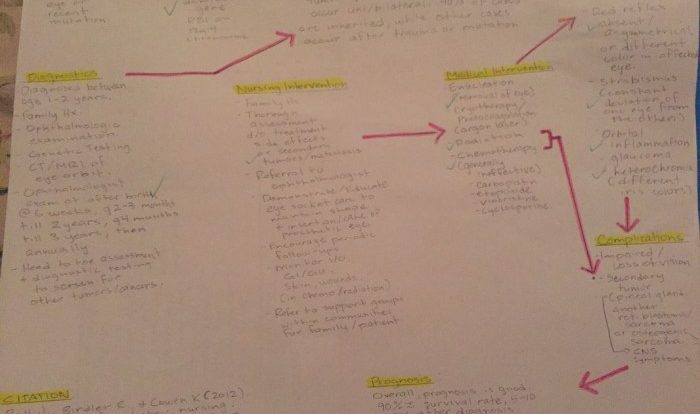 eye or
recent
mutation
gene
RB1 on
occur uni/bilateral. 40% of cases
are inherited, while other cases
occur after trauma or mutation
- Red reflex
absent/
asymmetrical
or different
color in affected
eye.
- Strabismus
(constant
deviation of
one eye from
the other)
- Orbital
inflammation
- glaucoma
- heterochromia
(different
iris colors)
Diagnostics
Diagnosed between
age 1-2 years.
- Family Hx.
- Ophthalmologic
examination.
- Genetic Testing
- CT/MRI of
eye orbit.
- Ophthalmologist
exam at after birth
@ 6 weeks, q2-3 months
till 2 years, q4 months
till 3 years, then
annually
- Need to hoe assessment
+ diagnostic testing
to screen for
other tumors/cancers.
Nursing Intervention
- Family Hx
- Thorough
assessment
d/o treatment
side effects
or secondary
tumors/metastasis
- Referral to
ophthalmologist
- Demonstrate/Educate
eye socket care to
maintain shape
+ insertion/care of
prosthetic eye
- Encourage periodic
follow-ups
- Monitor I/O,
GI/GU,
skin, wounds.
(in chemo/radiation)
- Refer to support groups
within communities
for family/patient
Medical Intervention
- Enucleation
(removal of eye)
- Cryotherapy/
Photocoagulation
(argon laser)
- Radiation
- Chemotherapy
(generally
ineffective)
- carboplatin
- etoposide
- vincristine
- cyclosporine.
Complications
- Impaired/
Loss of vision
- Secondary
tumor
(pineal gland,
another
retinoblastoma/
sarcoma
or osteogenic
sarcoma.
CNS
symptoms
CITATION
Bindler R. & Cowen K (2012)
nursing.
Prognosis
Overall, prognosis is good
90% survival rate, 5-10
after diagnosis